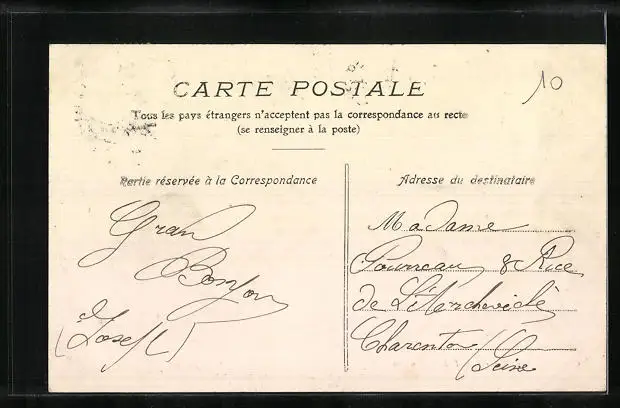 10
CARTE POSTALE
Tous les pays étrangers n'acceptent pas la correspondance au recto
(se renseigner à la poste)
Partie réservée à la Correspondance
Gran
Bonjou
(Josept)
Adresse du destinataire
Madame
8 Rue
de
Charenton
(Seine